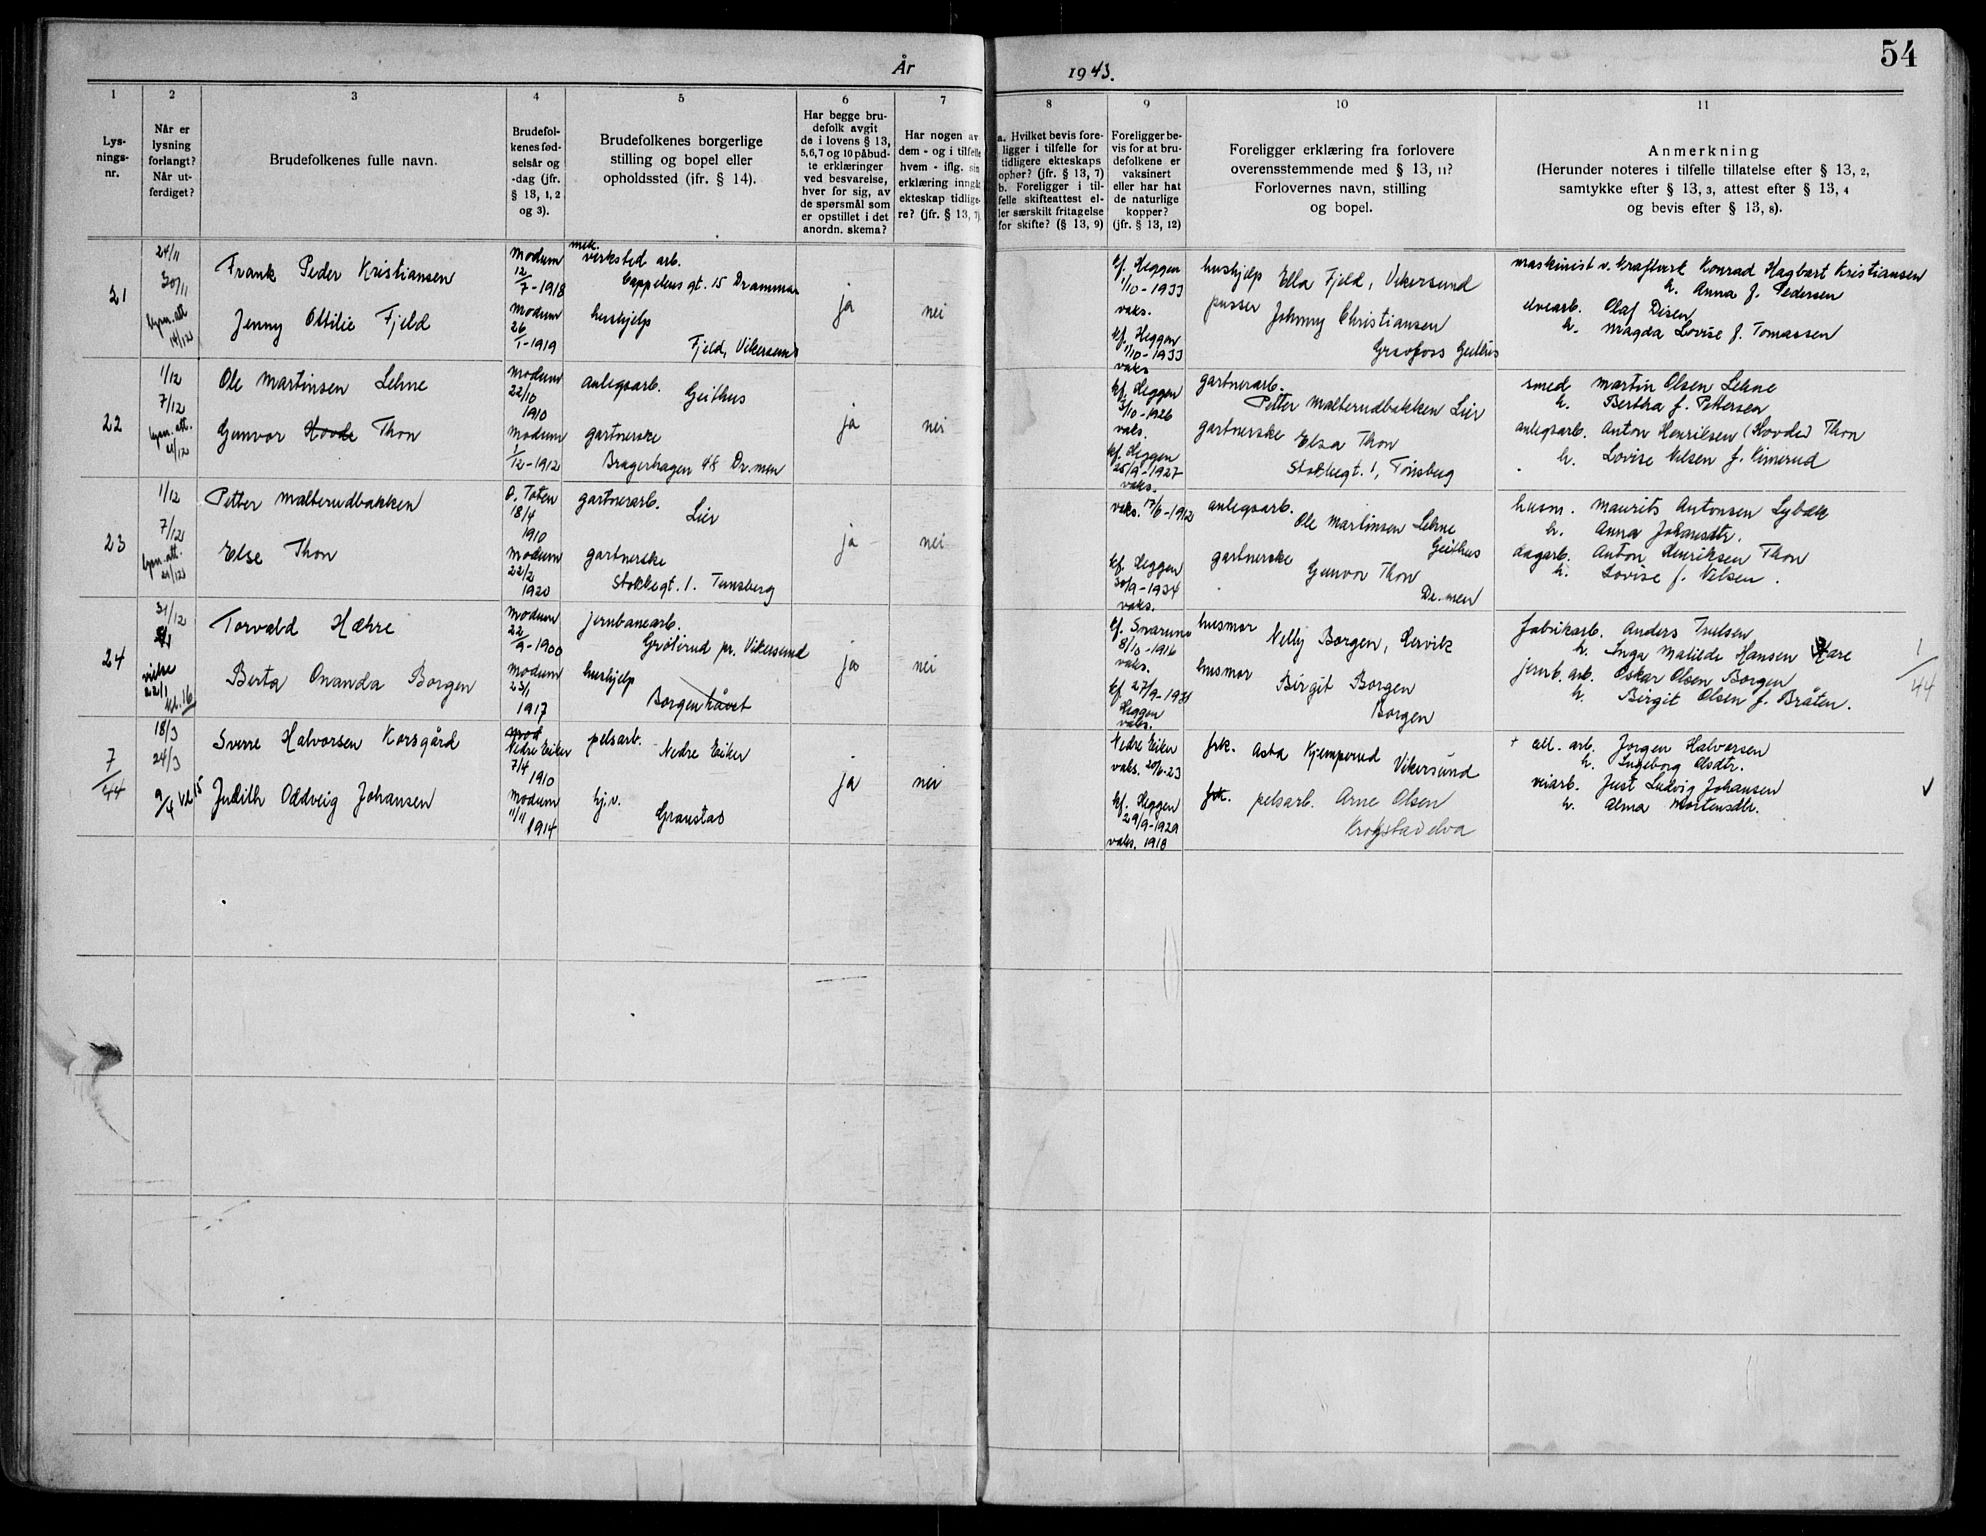 54
År 1943.
1
2
3
4
5
6
7
8
9
10
11
Lys-
nings-
nr.
Når er
lysning
forlangt?
Når ut-
ferdiget?
Brudefolkenes fulle navn.
Brudefol-
kenes fød-
selsår og
-dag (jfr.
§ 13, 1, 2
og 3).
Brudefolkenes borgerlige
stilling og bopel eller
opholdssted (ifr. § 14).
Har begge bru-
defolk avgit
de i lovens § 13,
5,6,7 og 10 påbud-
te erklæringer
ved besvarelse,
hver for sig, av
de spørsmål som
er opstillet i det
anordn. skema?
Har nogen av
dem - og i tilfelle
hvem - iflg. sin
erklæring inngk
ekteskap tidlige-
re? (jfr. § 13, 7)
a. Hvilket bevis fore-
ligger i tilfelle for
tidligere ekteskaps
ophør? (jfr. § 13, 7)
b. Foreligger i til-
felle skifteattest el-
ler særskilt fritagelse
for skifte? (§ 13, 9)
Foreligger be-
vis for at bru-
defolkene er
vaksinert
eller har hat
de naturlige
kopper?
(jfr. § 13, 12)
Foreligger erklæring fra forlovere
overensstemmende med § 13, 11?
Forlovernes navn, stilling
og bopel.
Anmerkning
(Herunder noteres i tilfelle tillatelse efter § 13, 2,
samtykke efter § 13, 3, attest efter § 13, 4
og bevis efter § 13, 8).
21
24/11
30/11
lysn. att
14/12
Frank Peder Kristiansen
Jenny Ottilie Fjeld
Modum
12/7-1918
Modum
26/1-1919
mek.
verksted arb.
Cappelens gt. 15 Drammen
hushjelp
Fjeld, Vikersund
ja
nei
kf. Heggen
1/10-1933
vaks.
kf. Heggen
1/10-1933
vaks
hushjelp Ella Fjeld, Vikersund
pusser Johnny Christiansen
Gravfoss Geithus
maskinist v. kraftverk Konrad Hagbart Kristiansen
h. Anna f. Pedersen
elvearb. Olaf Disen
h. Magda Lovise f. Tomassen
22
1/12
7/12
lysn. att.
21/12
Ole Martinsen Lehne
Gunvor Hovde Thon
Modum
22/10
1910
Modum
1/12-1912
anlegsarb.
Geithus
gartnerske
Bragerhagen 48 Dr.men
ja
nei
kf. Heggen
3/10-1926
vaks.
kf. Heggen
25/9-1927
vaks.
gartnerarb.
Petter Malterudbakken Lier
gartnerske Elsa Thon
Stokkegt. 1, Tønsberg
smed Martin Olsen Lehne
h. Bertha f. Pettersen
anlegsarb. Anton Henriksen (Hovde) Thon
h. Lovise Nilsen f. Kimerud
23
1/12
7/12
lysn. att.
21/12
Petter Malterudbakken
Else Thon
Ø. Toten
18/4
1910
Modum
22/2
1920
gartnerarb.
Lier
gartnerske
Stokkegt. 1. Tunsberg
ja
nei
vaks. 17/6-1912
kf. Heggen
30/9-1934
vaks.
anlegsarb.
Ole Martinsen Lehne
Geithus
gartnerske
Gunvor Thon
Dr.men
husm. Maurits Antonsen Lybæk
h. Anna Johansdtr.
dagarb. Anton Henriksen Thon
h. Lovise f. Nilsen.
24
31/12
vielse
22/1
Torvald Hæhre
Berta Onanda Borgen
Modum
22/9-1900
Modum
23/1
1917
jernbanearb.
Grøterud pr. Vikersund
hushjelp
Borgen
ja
nei
kf. Snarum
8/10-1916
vaks.
kf. 27/9-1931
Heggen
vaks.
husmor Nelly Borgen, Hervik
husmor
Birgit Borgen
Borgen
fabrikarb. Anders Truelsen
h. Inga Matilde Hansen Hare
jernb. arb. Oskar Olsen Borgen
h. Birgit Olsen f. Bråten.
1/44
7/44
18/3
24/3
9/4
Sverre Halvorsen Korsgård
Judith Oddveig Johansen
Mod
Nedre Eiker
7/4
1910
Modum
11/11
1914
pelsarb.
Nedre Eiker
hj.v.
Granstad
ja
nei
Nedre Eiker
vaks. 20/6-23
kf. Heggen
29/9-1929
vaks. 1918
frk. Asta Kjemperud Vikersund
frk. pelsarb. Arne Olsen
Krokstadelva
+ all. arb. Jørgen Halvorsen
h. Ingeborg Olsdtr.
veiarb. Just Ludvig Johansen
h. Alma Mortensdtr.